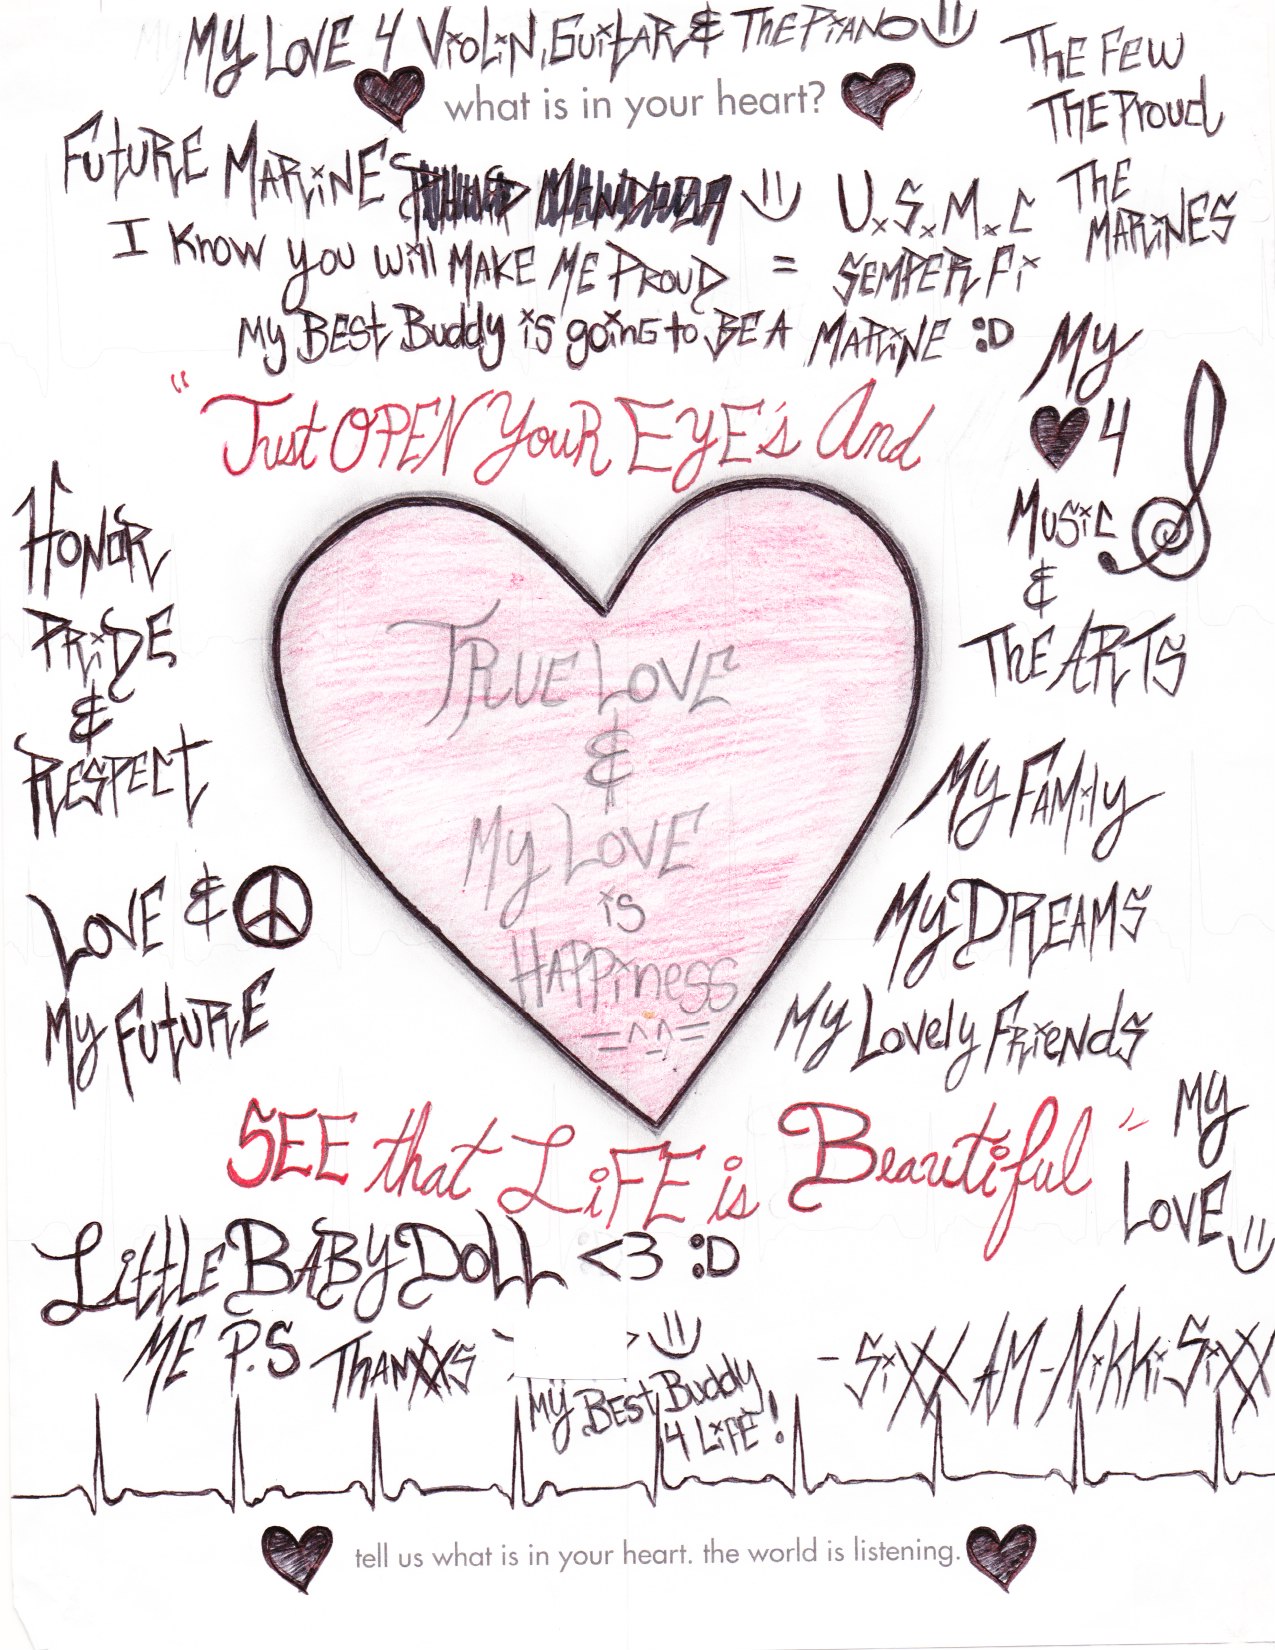 My Love 4 Violin, Guitar & The Piano
what is in your heart?
The Few
The Proud
The
Marines
Future Marine
U.S.M.C
I know you will make me Proud = Semper Fi
my Best Buddy is going to BE A Marine :D
"Just OPEN YouR EYE's And
My
4
Music
&
The ARTS
Honor
Pride
&
Respect
Love &
My Future
True Love
&
My Love
is
Happiness
=^^=
My Family
My Dreams
My Lovely Friends
My
Love
SEE that LiFE is Beautiful"
Little Baby Doll <3 :D
ME P.S Thanxxs
My Best Buddy
4 Life!
- Sixx AM - Nikki Sixx
tell us what is in your heart. the world is listening.